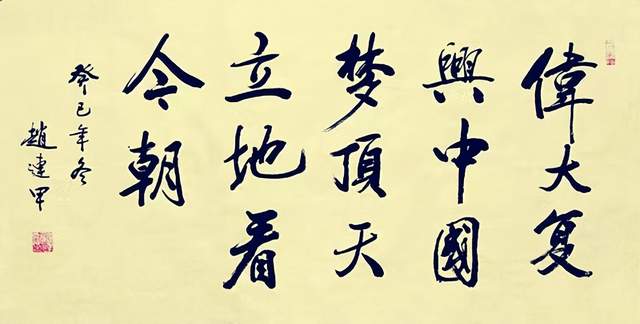 偉大复
興中國
梦頂天
立地看
今朝
癸巳年冬
趙連甲